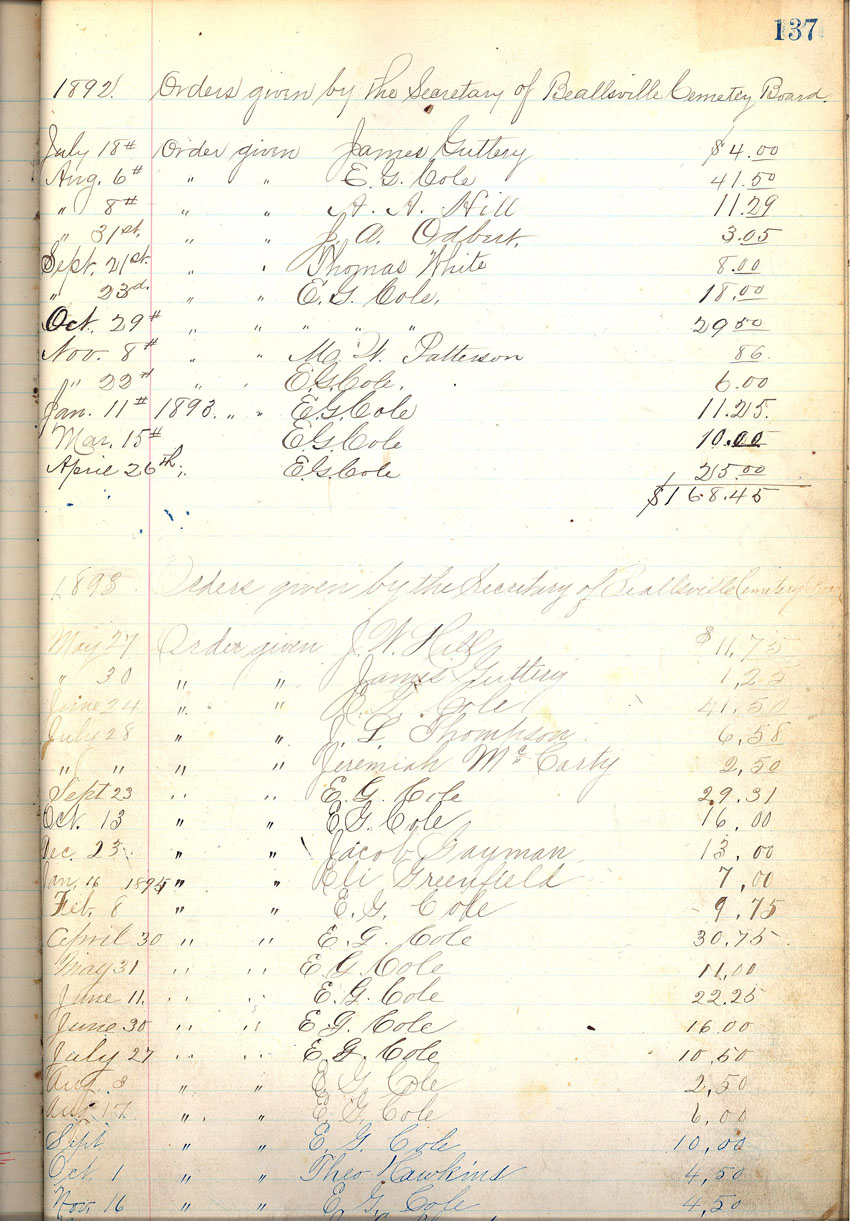 137
1892. Orders given by the Secretary of Beallsville Cemetey Board.
July 18th Order given James Guttery $4.00
Aug. 6th " " E. G. Cole 41.50
" 8th " " A. A. Hill 11.29
" 31st. " " J. A. Odbert. 3.05
Sept. 21st. " " Thomas White 8.00
" 23d. " " E. G. Cole. 18.00
Oct. 29th " " " " " 29 50
Nov. 8th " " M. W. Patterson 86.
" 22nd " " E.G. Cole. 6.00
Jan. 11th 1893. " " E.G. Cole 11.25.
Mar. 15th E.G. Cole 10.00
April 26th. " E.G. Cole 25.00
$168.45
1893. Orders given by the Secretary of Beallsville Cemetery
May 27 Order given J. W. Hill $11,75
" 30 " " James Guttery 1,25
June 24 " " E. G. Cole 41.50
July 28 " " J. L. Thompson. 6,58
" " " " Jeremiah Mc Carty 2,50
Sept 23 " " E. G. Cole 29.31
Oct. 13 " " E. G. Cole 16,00
Dec. 23 " " Jacob Gayman 13,00
Jan. 16 1894 " " Eli Greenfield 7,00
Feb. 8 " " E. G. Cole 9.75
April 30 " " E. G. Cole 30.75
May 31 " " E G. Cole 11.00
June 11. " " E. G. Cole 22.25
June 30 " " E G. Cole 16.00
July 27 " " E. G. Cole 10.50
Aug. 3 " " E G Cole 2,50
Aug. 17 " " E. G. Cole 6,00
Sept. " " E. G. Cole 10,00
Oct. 1 " " Theo Hawkins 4,50
Nov. 16 " " E. G. Cole 4,50